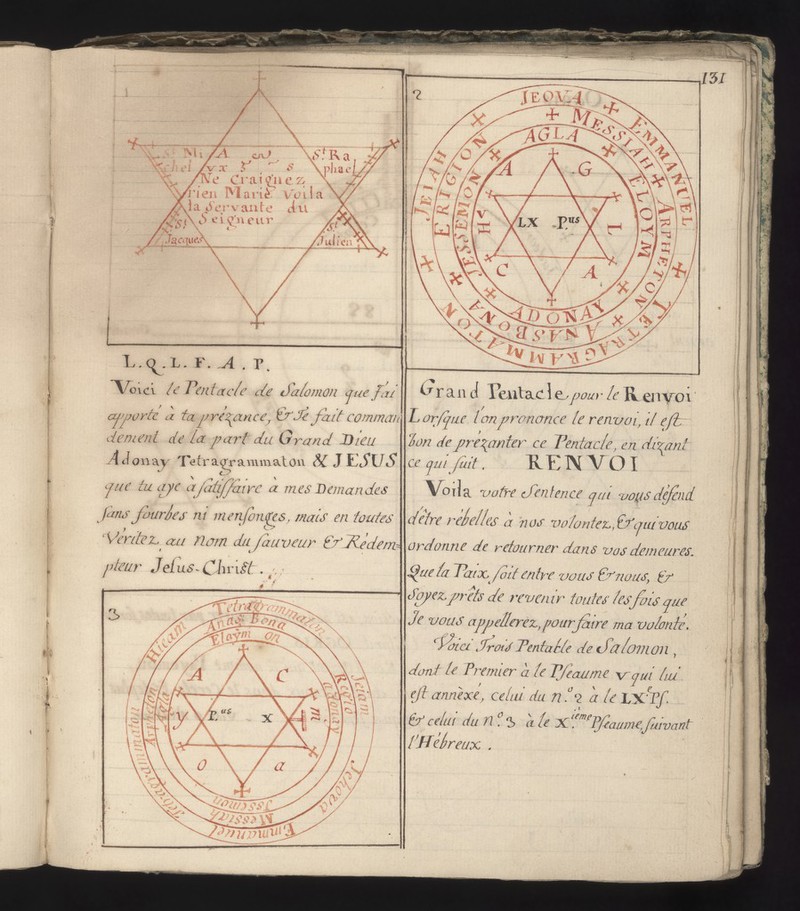 131
1
St Mi
chel
A
St Ra
phael
y x 3 8
Ne Craignez
rien Marie Voila
la Servante du
Seigneur
St
Jacques
St
Julien
L. Q. L. F. A. P.
Voici le Pentacle de Salomon que J'ai
apporté à ta prézance, & Je fait comman
dement de la part du Grand Dieu
Adonay Tetragrammaton & JESUS
que tu aye à satisfaire à mes Demandes
sans fourbes ni mensonges, mais en toutes
Véritez, au nom du sauveur & Rédem
pteur Jesus-Christ.
3
Tetragrammaton
Jeiam
Jehova
Emmanuel
Tetragrammaton
Hicam
Anas Bona
Regio
Messiah
Arpheton
Elaym on
adonay
Issemon
Agla
A C
y P.us x m
o a
2
JEOVA
EMMANUEL
TETRAGRAMMATON
JEIAH
MESSIAH
ARPHETON
ANASBONA
ERIGION
AGLA
ELOYM
ADONAY
JESSEMON
A G
H LX P.us L
C A
Grand Pentacle pour le Renvoi
Lorsque l'on prononce le renvoi, il est
bon de prézanter ce Pentacle, en dizant
ce qui suit. RENVOI
Voila votre Sentence qui vous défend
d'être rébelles à nos volontez, & qui vous
ordonne de rétourner dans vos demeures.
Que la Paix soit entre vous & nous, &
Soyez prêts de revenir toutes les fois que
Je vous appellerez, pour faire ma volonté.
Voici Trois Pentakle de Salomon,
dont le Premier a le Pseaume v qui lui
est annèxé, celui du n.o 2 a le LX.e Ps.
& celui du n.o 3 a le X.ième Pseaume, suivant
l'Hébreux.